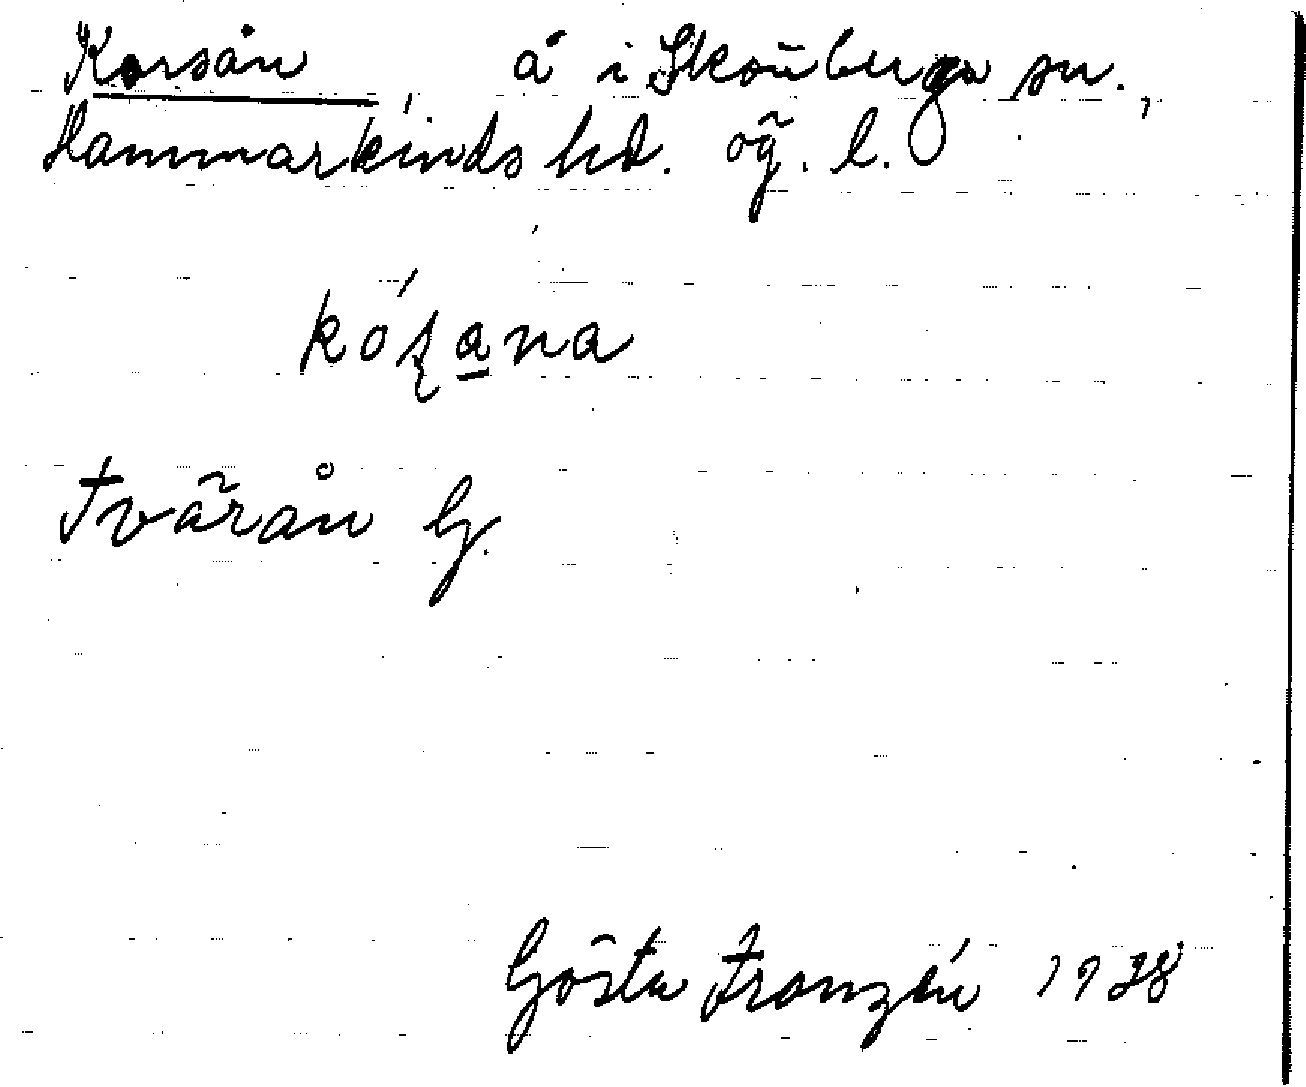 Korsån, å i Skönberga sn.,
Hammarkinds hd. Ög. l.
Tvärån G.
Gösta Franzén 1938